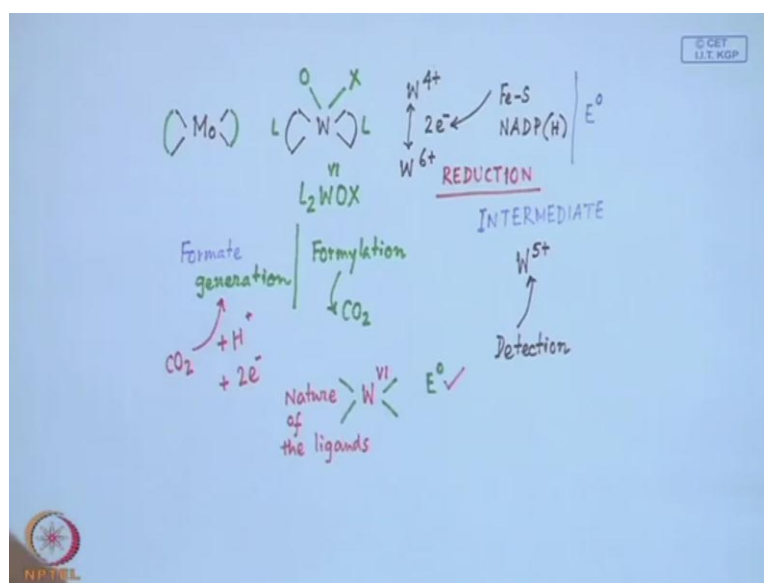 © CET
I.I.T. KGP
O X
Mo L W L
VI
L₂WOX
W⁴⁺
2e⁻
W⁶⁺
Fe-S
NADP(H)
E⁰
REDUCTION
INTERMEDIATE
W⁵⁺
Detection
Formate
generation
CO₂ + H⁺
+ 2e⁻
Formylation
CO₂
Nature
of
the ligands
W VI
E⁰ ✓
NPTEL